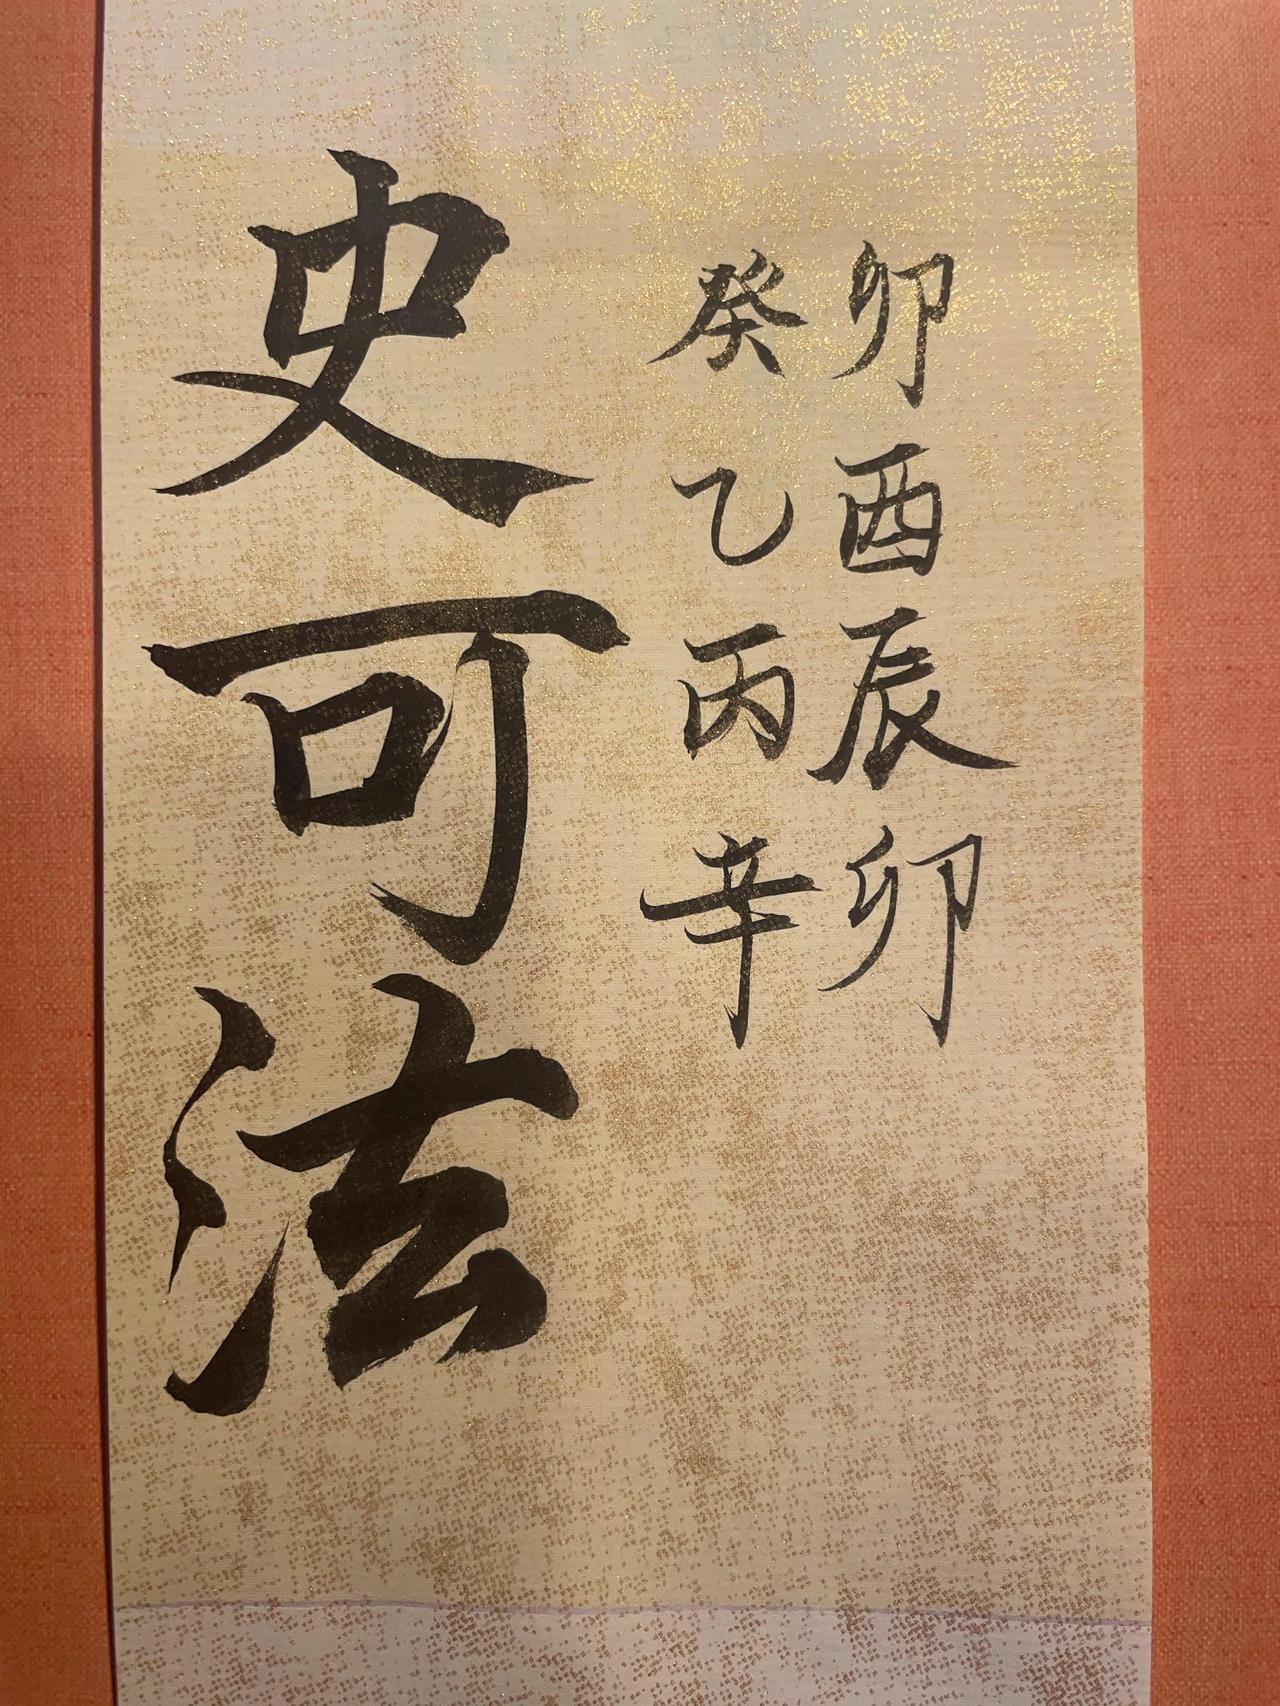 卯酉辰卯
癸乙丙辛
史可法